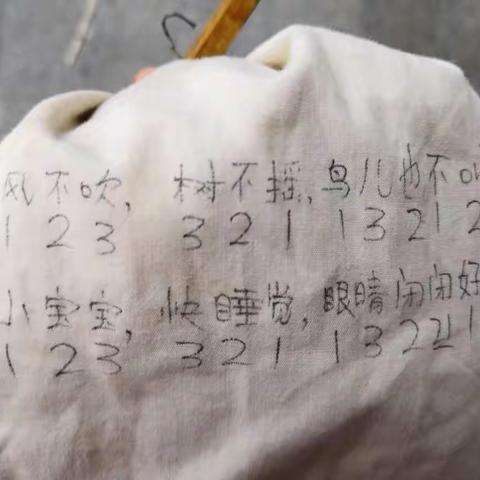 风不吹, 树不摇, 鸟儿也不叫
1 2 3 3 2 1 1 3 2 1 2
小宝宝, 快睡觉, 眼睛闭闭好
1 2 3 3 2 1 1 3 2 2 1 1